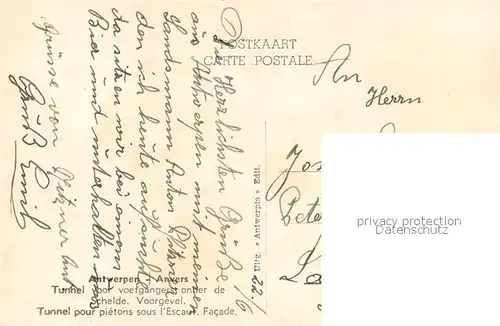 POSTKAART
CARTE POSTALE
Die Herzlichsten Grüße
aus Antwerpen mit meinen
Landsmann Anton
den ich heute aufsuchte
da sitzen wir bei einem
Bier und unterhalten uns
Gruß Emil
Grüsse von Anton
22/6
An
Herrn
Uitg. « Antwerpia » Edit.
privacy protection
Datenschutz
Antwerpen - Anvers
Tunnel voor voetgangers onder de
Schelde. Voorgevel.
Tunnel pour piétons sous l'Escaut. Façade.